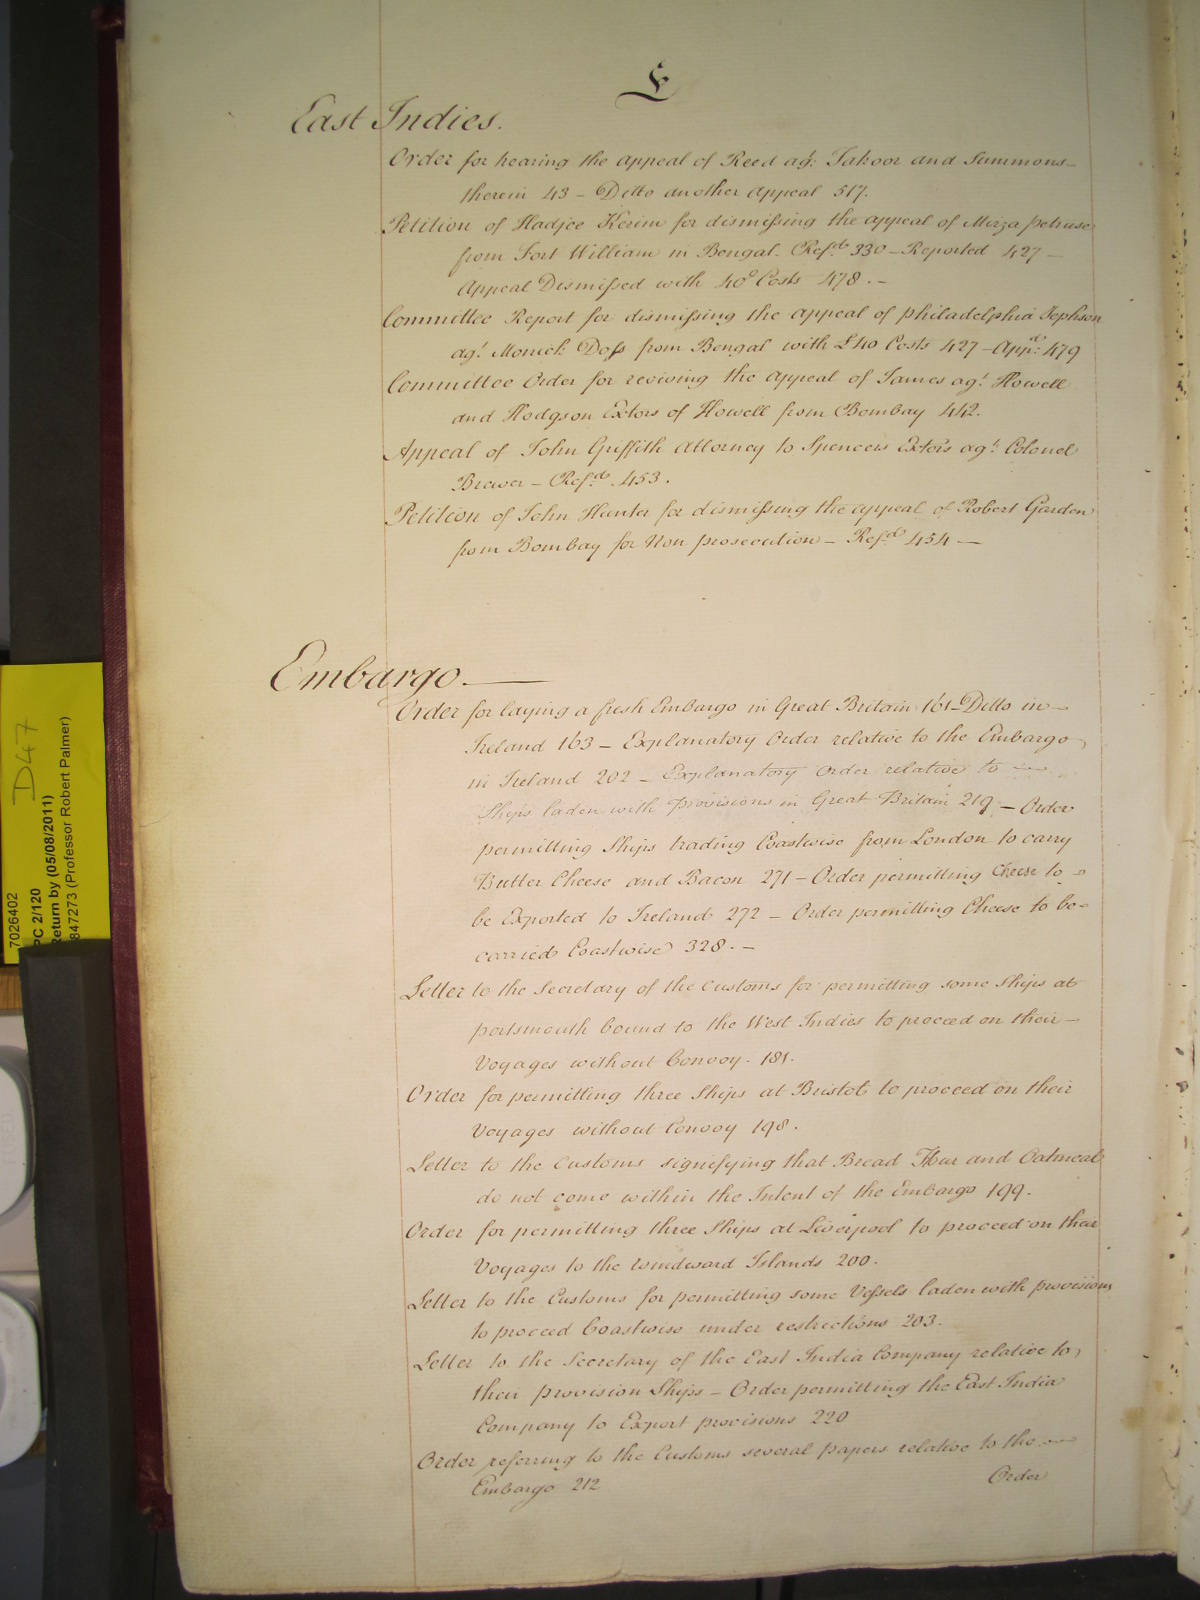 E
East Indies.
Order for hearing the Appeal of Reed agt. Takoor and Summons
therein 43 – Ditto another Appeal 517.
Petition of Hadjee Kerim for dismissing the appeal of Mirza petruse
from Fort William in Bengal. Refd. 330 – Reported 427 –
Appeal Dismissed with 40£ Costs 478. –
Committee Report for dismissing the appeal of philadelphia Jephson
agt. Monick Doss from Bengal with £40 Costs 427 – Appd. 479
Committee Order for reviving the Appeal of James agt. Howell
and Hodgson Extors of Howell from Bombay 442.
Appeal of John Griffith Attorney to Spencers Extors agt. Colonel
Brewer – Refd. 453.
Petition of John Hunter for dismissing the appeal of Robert Garden
from Bombay for Non prosecution – Refd. 454 –
Embargo. –
Order for laying a fresh Embargo in Great Britain 161 – Ditto in –
Ireland 163 – Explanatory Order relative to the Embargo
in Ireland 202 – Explanatory Order relative to –
Ships laden with Provisions in Great Britain 219 – Order
permitting Ships trading Coastwise from London to carry
Butter Cheese and Bacon 271 – Order permitting Cheese to –
be Exported to Ireland 272 – Order permitting Cheese to be –
carried Coastwise 328. –
Letter to the Secretary of the Customs for permitting some Ships at
portsmouth bound to the West Indies to proceed on their –
Voyages without Convoy. 181.
Order for permitting three Ships at Bristol to proceed on their
Voyages without Convoy 198.
Letter to the Customs signifying that Bread Flour and Oatmeal
do not come within the Intent of the Embargo 199.
Order for permitting three Ships at Liverpool to proceed on their
Voyages to the windward Islands 200.
Letter to the Customs for permitting some Vessels laden with provisions
to proceed Coastwise under restrictions 203.
Letter to the Secretary of the East India Company relative to
their provision Ships – Order permitting the East India
Company to Export provisions 220
Order referring to the Customs several papers relative to the –
Embargo 212
Order
7026402
PC 2/120
Return by (05/08/2011)
847273 (Professor Robert Palmer)
D47